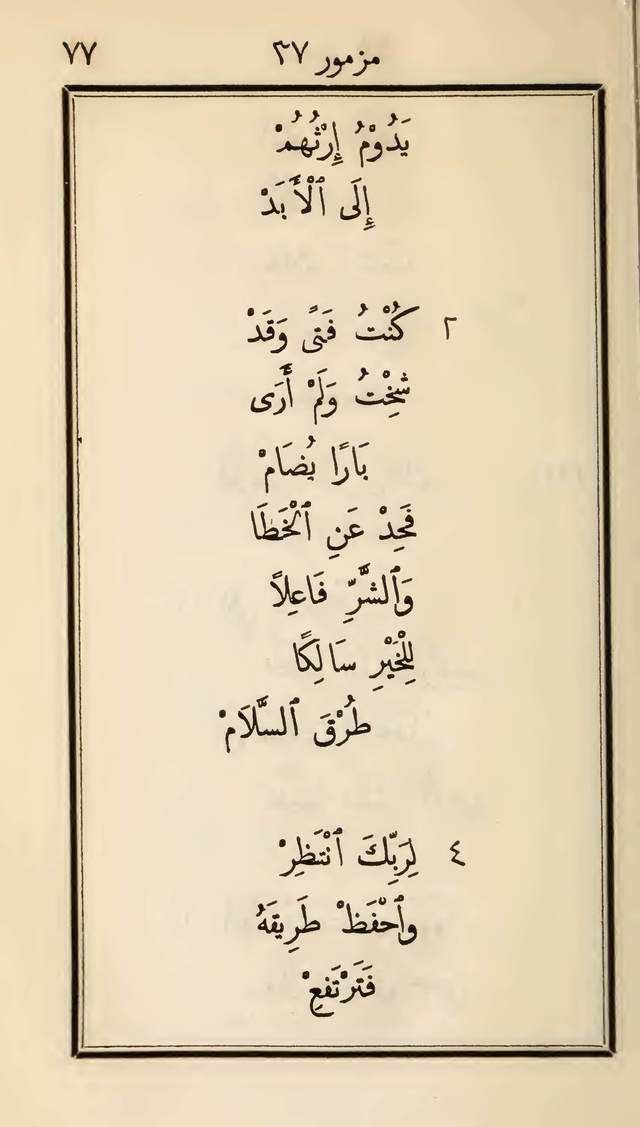 مزمور ٣٧ ٧٧
يَدُوْمُ إِرْثُهُمْ
إِلَى ٱلْأَبَدْ
٢ كُنْتُ فَتًى وَقَدْ
شِخْتُ وَلَمْ أَرَى
بَارًا يُضَامْ
فَحِدْ عَنِ ٱلْخَطَا
وَٱلشَّرِّ فَاعِلًا
لِلْخَيْرِ سَالِكًا
طُرْقَ ٱلسَّلَامْ
٤ لِرَبِّكَ ٱنْتَظِرْ
وٱحْفَظْ طَرِيقَهُ
فَتَرْتَفِعْ